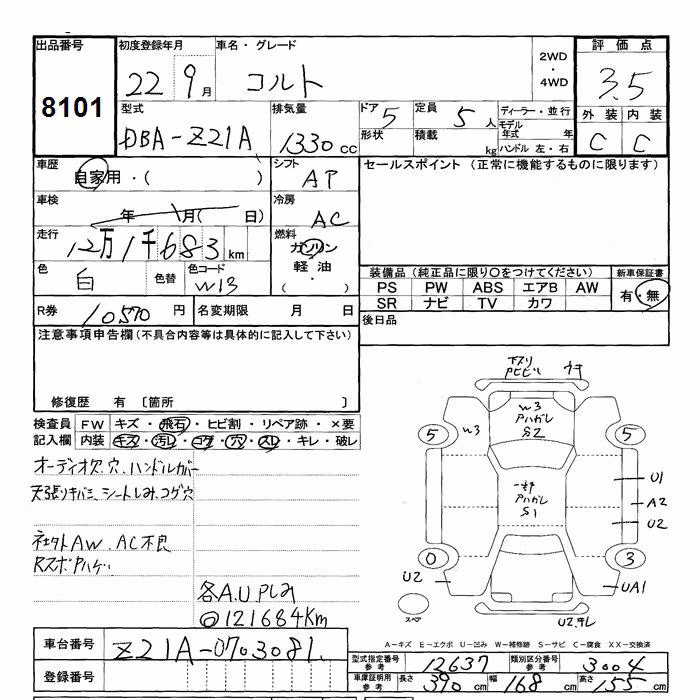 出品番号 初度登録年月 車名・グレード 2WD ・ 4WD 評価点
8101 22 9月 コルト 3.5
型式 排気量 ドア 5 定員 5人 ディーラー・並行 外装 内装
DBA-Z21A 1330cc 形状 積載 kg モデル年式 年 C C
ハンドル 左・右
車歴 自家用・( ) シフト AT セールスポイント (正常に機能するものに限ります)
車検 年 月( 日) 冷房 AC
走行 12万1千683km 燃料 ガソリン
軽油・( )
色 白 色替 色コード W13
装備品(純正品に限り○をつけてください) 新車保証書
PS PW ABS エアB AW 有・無
SR ナビ TV カワ
R券 10570円 名変期限 月 日 後日品
注意事項申告欄(不具合内容等は具体的に記入して下さい)
修復歴 有 〔箇所 〕
検査員 FW キズ・飛石・ヒビ割・リペア跡・×要
記入欄 内装 キズ・汚レ・コゲ・穴・スレ・キレ・破レ
オーディオ欠、穴、ハンドルカバー
天張りキバミ、シートしみ、コゲ穴
社外AW、AC不良
各A.Uアしみ
◎121684Km
下スリ
W3
アハガレ
S2
W3
5 5
アハガレ
S1
U1
A2
U2
0 3
U2
UA1
スペア
U2.キレ
A-キズ E-エクボ U-凹み W-補修跡 S-サビ C-腐食 XX-交換済
車台番号 Z21A-0703081
型式指定番号 参考 12637 類別区分番号 参考 3004
登録番号
車庫証明用 参考 長さ 390cm 幅 168cm 高さ 155cm